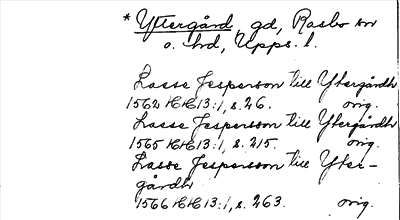 * Yttergård, gd, Rasbo sn
o. hd, Upps. l.
Lasse Jespersson till Yttergårdh
1562 HH 13:1, s. 26. orig.
Lasse Jespersson till Yttergårdh
1565 HH 13:1, s. 215. orig.
Lasse Jespersson till Ytter-
gårdh
1566 HH 13:1, s. 263. orig.